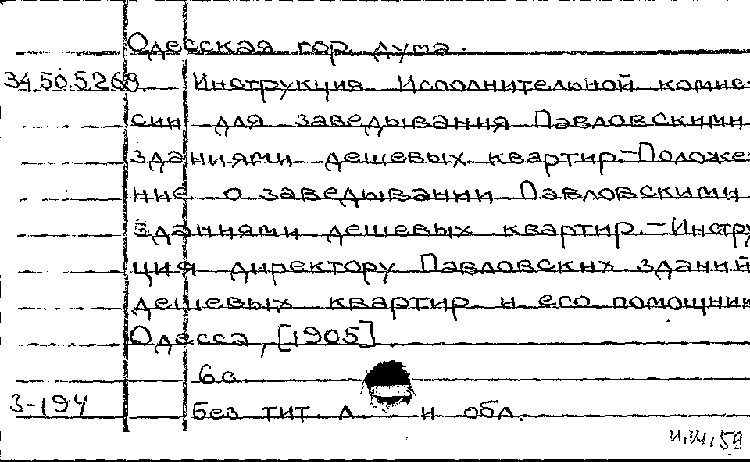 Одесская гор дума.
34.50.5268 Инструкция Исполнительной комис-
сии для заведывания Павловскими
зданиями дешевых квартир.-Положе-
ние о заведывании Павловскими
зданиями дешевых квартир.-Инстру
ция директору Павловских зданий
дешевых квартир и его помощник
Одесса, [1905].
6с.
3-194 без тит л. и обл.